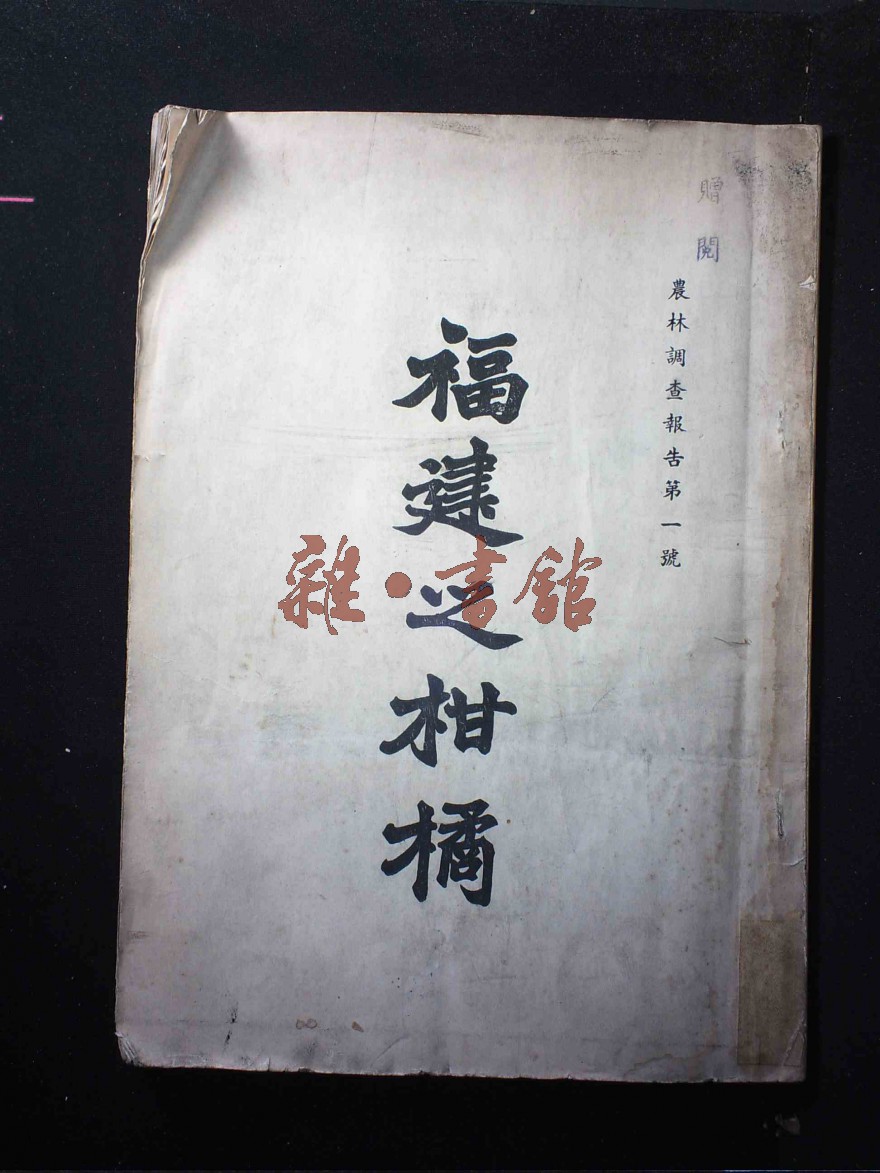 贈閱
農林調查報告第一號
福建之柑橘
雜·書館